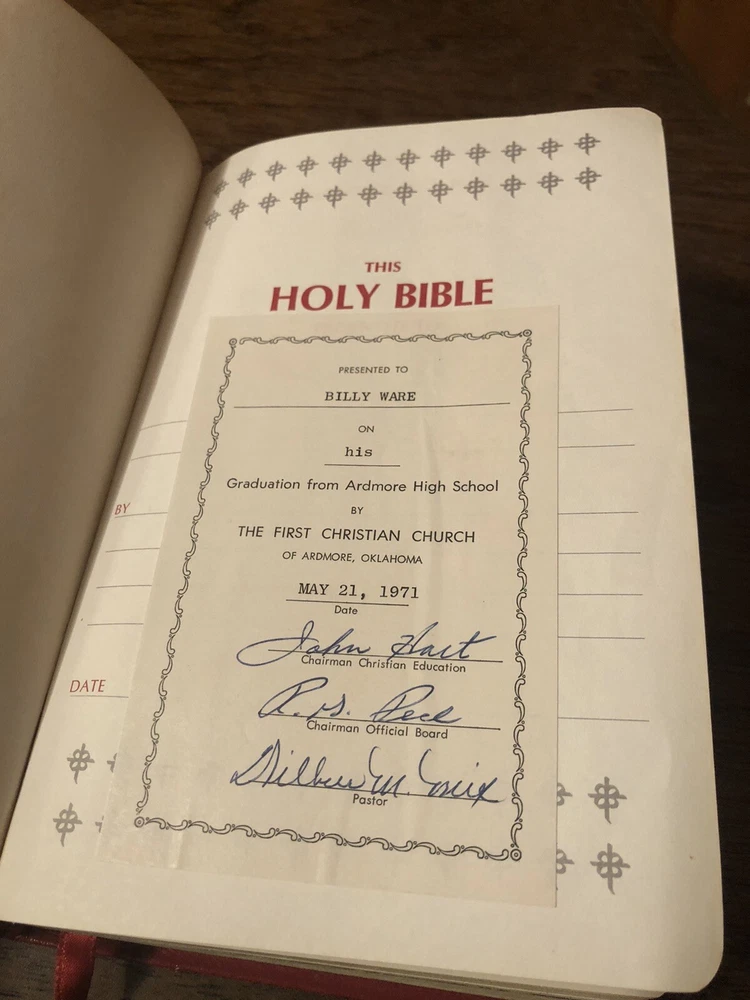 THIS
HOLY BIBLE
PRESENTED TO
BILLY WARE
ON
his
Graduation from Ardmore High School
BY
THE FIRST CHRISTIAN CHURCH
OF ARDMORE, OKLAHOMA
MAY 21, 1971
Date
John Hart
Chairman Christian Education
R.
Chairman Official Board
M.
Pastor
BY
DATE